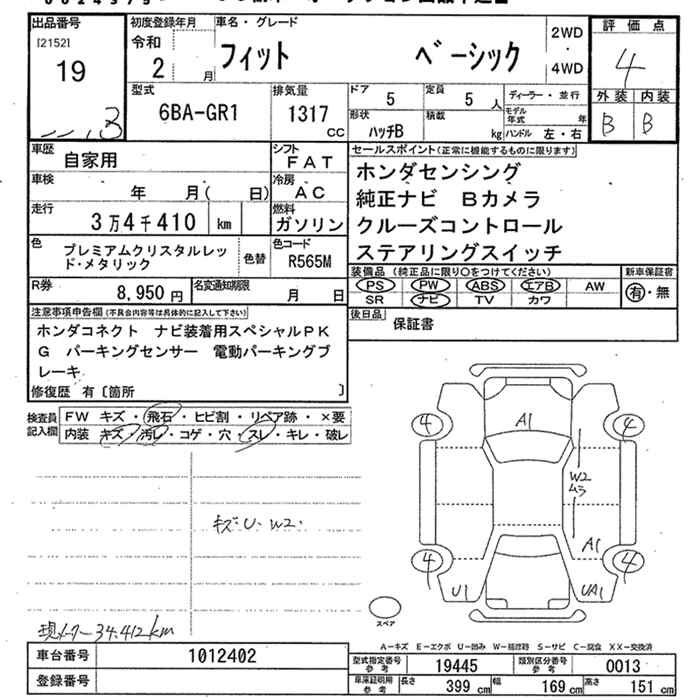 出品番号
[2152]
19
初度登録年月
令和
2 月
車名・グレード
フィット ベーシック
2WD
・
4WD
評価点
4
外装 内装
B B
型式
6BA-GR1
排気量
1317
CC
ドア 5 定員 5 人
形状 ハッチB 積載 kg
ディーラー・並行
モデル年式 年
ハンドル 左・右
車歴 自家用
シフト FAT
車検 年 月( 日)
冷房 AC
走行 3万4千410 km
燃料 ガソリン
色 プレミアムクリスタルレッド・メタリック
色替
色コード R565M
R券 8,950円
名変通知期限 月 日
セールスポイント(正常に機能するものに限ります)
ホンダセンシング
純正ナビ Bカメラ
クルーズコントロール
ステアリングスイッチ
装備品(純正品に限り○をつけてください)
PS PW ABS エアB AW
SR ナビ TV カワ
新車保証書
有・無
後日品 保証書
注意事項申告欄(不具合内容等は具体的に記入して下さい)
ホンダコネクト ナビ装着用スペシャルPK
G パーキングセンサー 電動パーキングブ
レーキ
修復歴 有〔箇所 〕
検査員記入欄
FW キズ・飛石・ヒビ割・リペア跡・×要
内装 キズ・汚レ・コゲ・穴・スレ・キレ・破レ
キズ・U・W2.
現メーター 34.412km
4
4
A1
W2
A3
A1
4
4
U1
UA1
スペア
A-キズ E-エクボ U-凹み W-補修跡 S-サビ C-腐食 XX-交換済
車台番号 1012402
登録番号
型式指定番号参考 19445
類別区分番号参考 0013
車庫証明用参考 長さ 399 cm 幅 169 cm 高さ 151 cm